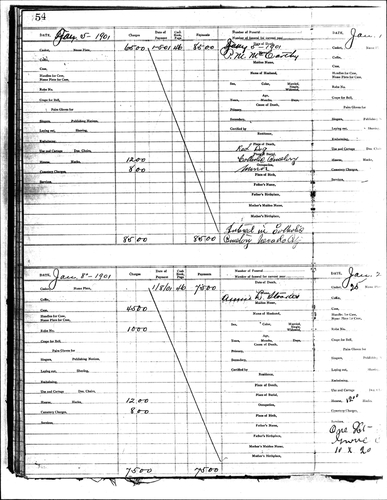 54
DATE, Jany 5- 1901 Charges Date of Payment Cash Book Page Payments Number of Funeral
Casket, Name Plate, 65 00 1-5-01 46 85 00 Jany 5th 1901
P. M. McCarthy
Maiden Name,
Case, Name of Husband,
Handles for Case,
Name Plate for Case, Sex, Color, Married, Single, Widowed,
Robe No. Years, Months, Days
Crape for Bell, Cause of Death,
Palm Gloves for Primary,
Singers, Publishing Notices, Secondary,
Laying out, Shaving, Certified by
Embalming, Residence,
Use and Carriage Doz. Chairs, Place of Death,
Red Dog
Hearse, Hacks, 12 00 Catholic Cemetery
Occupation,
Cemetery Charges, 8 00 Miner
Services, Place of Birth,
Father's Name,
Father's Birthplace,
Mother's Maiden Name,
Mother's Birthplace,
Interred in Catholic
85 00 85 00 Cemetery Nevada City
DATE, Jan 8th 1901 Charges Date of Payment Cash Book Page Payments Number of Funeral
Casket, Name Plate, 1/8/01 46 75 00 Date of Death,
Coffin, Annie L.
Maiden Name,
Case, 45 00 Name of Husband,
Handles for Case,
Name Plate for Case, Sex, Color, Married, Single, Widowed,
Robe No. 10 00
Crape for Bell, Years, Months, Days
Cause of Death,
Palm Gloves for Primary,
Singers, Publishing Notices, Secondary,
Laying out, Shaving, Certified by
Embalming, Residence,
Use and Carriage Doz. Chairs, Place of Death,
Hearse, Hacks, 12 00 Occupation,
Cemetery Charges, 8 00 Place of Birth,
Services, Father's Name,
Father's Birthplace,
Mother's Maiden Name,
Mother's Birthplace,
75 00 75 00
DATE, Jan. 1
Casket,
Coffin,
Case,
Handles for Case,
Name Plate for Case,
Robe No.
Crape for Bell,
Singers,
Laying out,
Embalming,
Use and Carriage
Hearse,
Cemetery Charges,
Services,
DATE, Jan 2
Casket,
25
Coffin,
Case,
Handles for Case,
Name Plate for Case,
Robe No.
Crape for Bell,
Singers,
Laying out,
Embalming,
Use and Carriage
Hearse, 12 00
Cemetery Charges,
Services,
One Lot
10 x 20